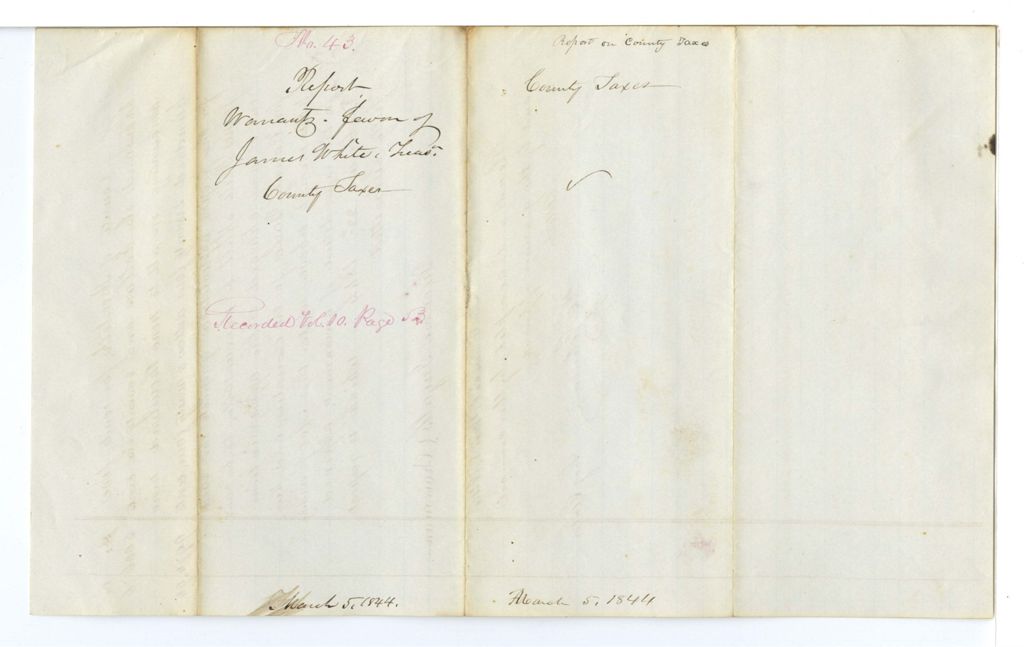 No. 43.
Report
Warrant - favor of
James White, Treas.
County Taxes
Recorded Vol. 10. Page
March 5, 1844.
Report on County Taxes
County Taxes
March 5, 1844